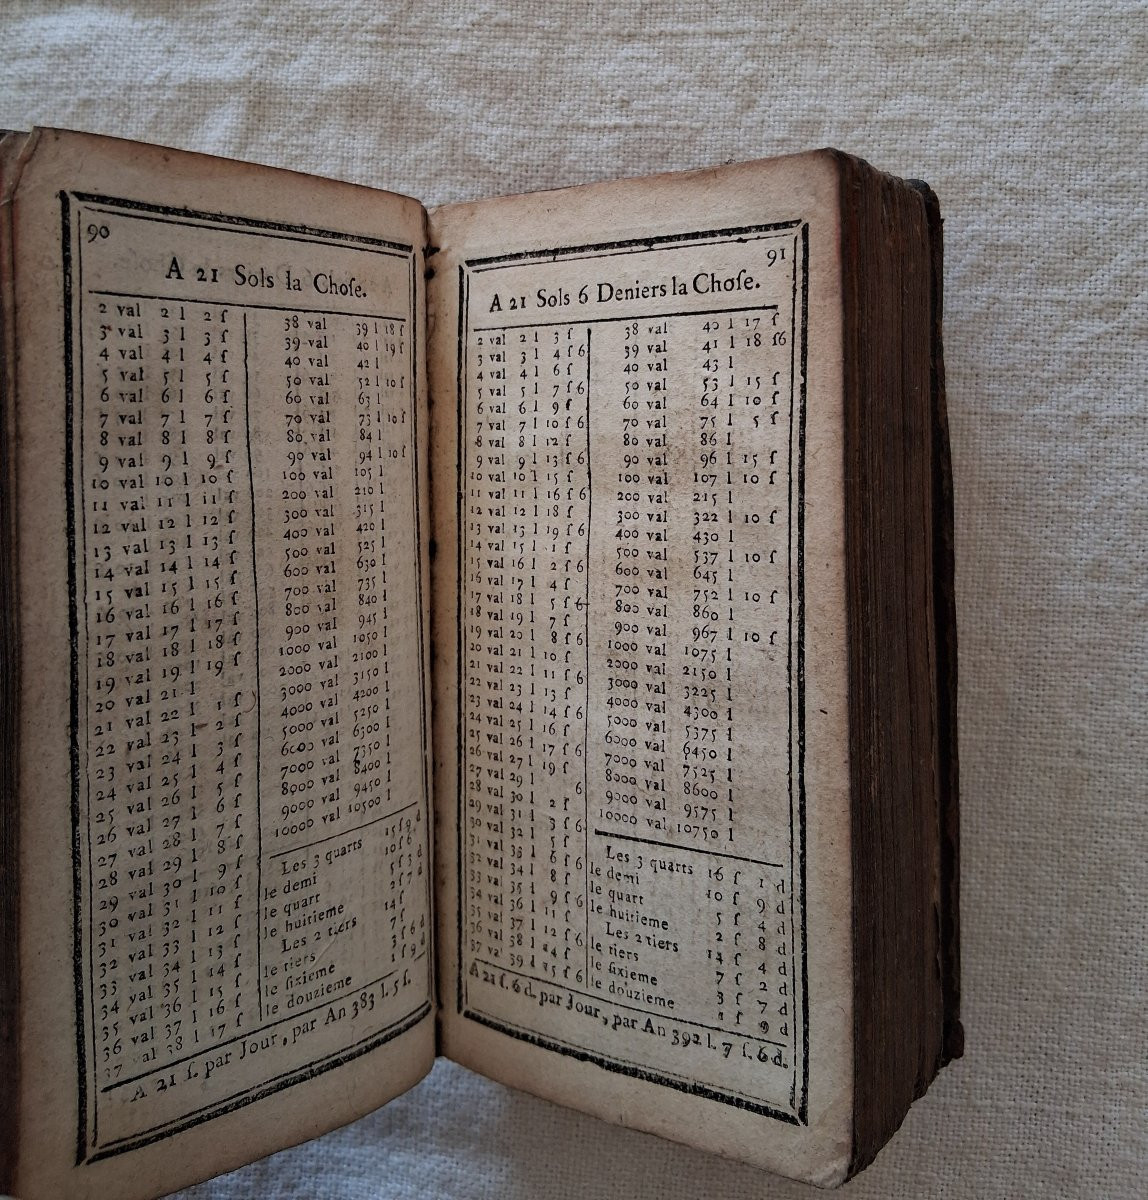 90
A 21 Sols la Choſe.
2 val 2 l 2 ſ
3 val 3 l 3 ſ
4 val 4 l 4 ſ
5 val 5 l 5 ſ
6 val 6 l 6 ſ
7 val 7 l 7 ſ
8 val 8 l 8 ſ
9 val 9 l 9 ſ
10 val 10 l 10 ſ
11 val 11 l 11 ſ
12 val 12 l 12 ſ
13 val 13 l 13 ſ
14 val 14 l 14 ſ
15 val 15 l 15 ſ
16 val 16 l 16 ſ
17 val 17 l 17 ſ
18 val 18 l 18 ſ
19 val 19 l 19 ſ
20 val 21 l
21 val 22 l 1 ſ
22 val 23 l 2 ſ
23 val 24 l 3 ſ
24 val 25 l 4 ſ
25 val 26 l 5 ſ
26 val 27 l 6 ſ
27 val 28 l 7 ſ
28 val 29 l 8 ſ
29 val 30 l 9 ſ
30 val 31 l 10 ſ
31 val 32 l 11 ſ
32 val 33 l 12 ſ
33 val 34 l 13 ſ
34 val 35 l 14 ſ
35 val 36 l 15 ſ
36 val 37 l 16 ſ
37 val 38 l 17 ſ
38 val 39 l 18 ſ
39 val 40 l 19 ſ
40 val 42 l
50 val 52 l 10 ſ
60 val 63 l
70 val 73 l 10 ſ
80 val 84 l
90 val 94 l 10 ſ
100 val 105 l
200 val 210 l
300 val 315 l
400 val 420 l
500 val 525 l
600 val 630 l
700 val 735 l
800 val 840 l
900 val 945 l
1000 val 1050 l
2000 val 2100 l
3000 val 3150 l
4000 val 4200 l
5000 val 5250 l
6000 val 6300 l
7000 val 7350 l
8000 val 8400 l
9000 val 9450 l
10000 val 10500 l
Les 3 quarts 15 ſ 9 d
le demi 10 ſ 6
le quart 5 ſ 3 d
le huitieme 2 ſ 7 d
Les 2 tiers 14 ſ
le tiers 7 ſ
le ſixieme 3 ſ 6 d
le douzieme 1 ſ 9 d
A 21 ſ. par Jour, par An 383 l. 5 ſ.
91
A 21 Sols 6 Deniers la Choſe.
2 val 2 l 3 ſ
3 val 3 l 4 ſ 6
4 val 4 l 6 ſ
5 val 5 l 7 ſ 6
6 val 6 l 9 ſ
7 val 7 l 10 ſ 6
8 val 8 l 12 ſ
9 val 9 l 13 ſ 6
10 val 10 l 15 ſ
11 val 11 l 16 ſ 6
12 val 12 l 18 ſ
13 val 13 l 19 ſ 6
14 val 15 l 1 ſ
15 val 16 l 2 ſ 6
16 val 17 l 4 ſ
17 val 18 l 5 ſ 6
18 val 19 l 7 ſ
19 val 20 l 8 ſ 6
20 val 21 l 10 ſ
21 val 22 l 11 ſ 6
22 val 23 l 13 ſ
23 val 24 l 14 ſ 6
24 val 25 l 16 ſ
25 val 26 l 17 ſ 6
26 val 27 l 19 ſ
27 val 29 l 6
28 val 30 l 2 ſ
29 val 31 l 3 ſ 6
30 val 32 l 5 ſ
31 val 33 l 6 ſ 6
32 val 34 l 8 ſ
33 val 35 l 9 ſ 6
34 val 36 l 11 ſ
35 val 37 l 12 ſ 6
36 val 38 l 14 ſ
37 va 39 l 15 ſ 6
38 val 40 l 17 ſ
39 val 41 l 18 ſ6
40 val 43 l
50 val 53 l 15 ſ
60 val 64 l 10 ſ
70 val 75 l 5 ſ
80 val 86 l
90 val 96 l 15 ſ
100 val 107 l 10 ſ
200 val 215 l
300 val 322 l 10 ſ
400 val 430 l
500 val 537 l 10 ſ
600 val 645 l
700 val 752 l 10 ſ
800 val 860 l
900 val 967 l 10 ſ
1000 val 1075 l
2000 val 2150 l
3000 val 3225 l
4000 val 4300 l
5000 val 5375 l
6000 val 6450 l
7000 val 7525 l
8000 val 8600 l
9000 val 9575 l
10000 val 10750 l
Les 3 quarts 16 ſ 1 d
le demi 10 ſ 9 d
le quart 5 ſ 4 d
le huitieme 2 ſ 8 d
Les 2 tiers 14 ſ 4 d
le tiers 7 ſ 2 d
le ſixieme 3 ſ 7 d
le douzieme 1 ſ 9 d
A 21 ſ. 6 d. par Jour, par An 392 l. 7 ſ. 6 d.